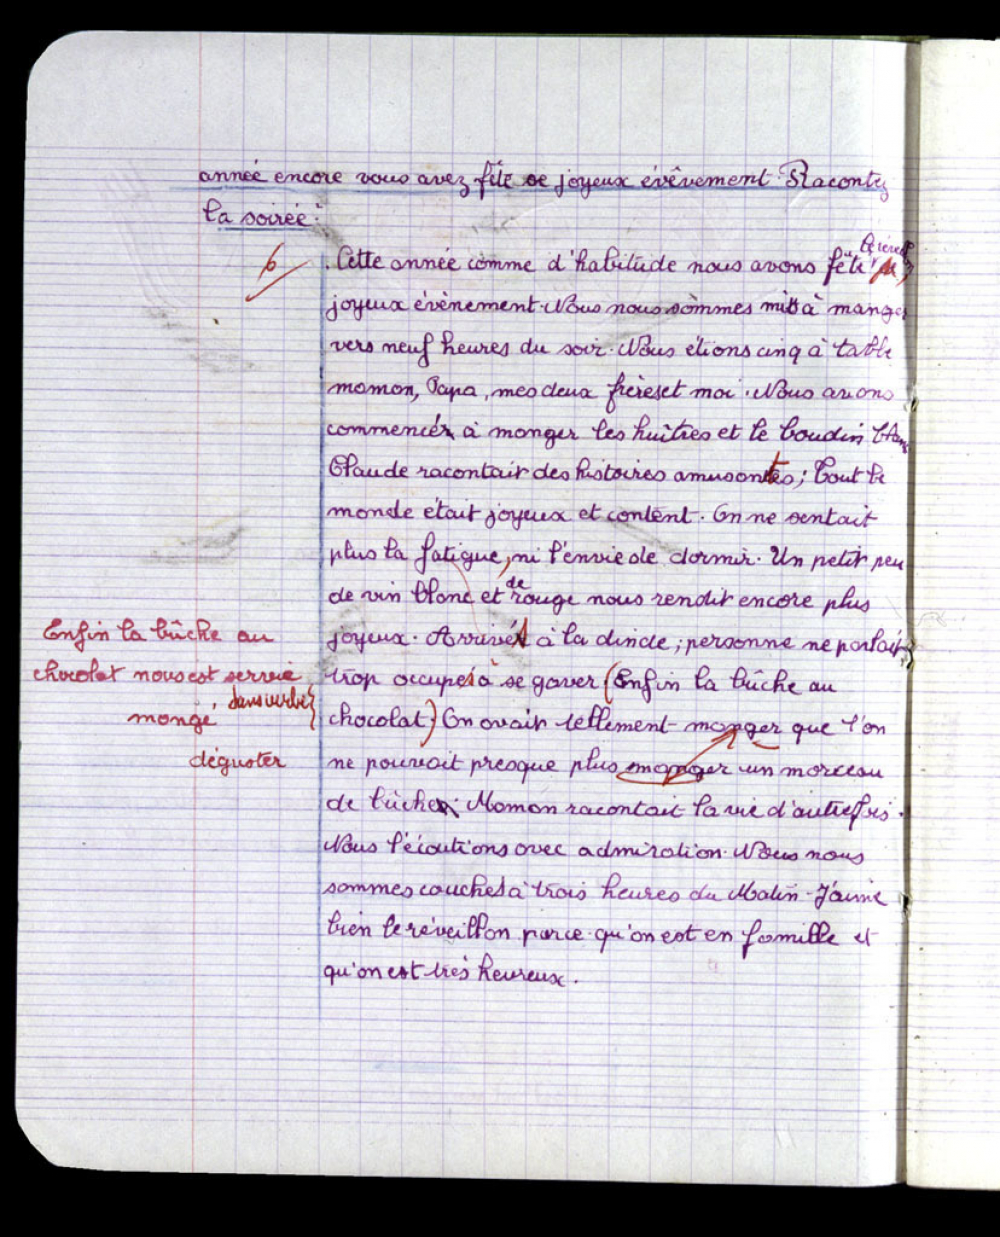 année encore vous avez fêté ce joyeux évênement. Racontez
la soirée.
6
Cette année comme d'habitude nous avons fêté
joyeux évènement. Nous nous sommes mis à manger
vers neuf heures du soir. Nous étions cinq à table
maman, Papa, mes deux frères et moi. Nous avions
commencer à manger les huîtres et le boudin blanc
Claude racontait des histoires amusantes; Tout le
monde était joyeux et content. On ne sentait
plus la fatigue, ni l'envie de dormir. Un petit peu
de
de vin blanc et rouge nous rendit encore plus
Enfin la bûche au
joyeux. Arrivés à la dinde; personne ne parlait,
chocolat nous est servie
trop occupés à se gaver (Enfin la bûche au
sans verbe
mangé
chocolat) On avait tellement manger que l'on
déguster
ne pouvait presque plus manger un morceau
de bûche. Maman racontait la vie d'autrefois.
Nous l'écoutions avec admiration. Nous nous
sommes couchés à trois heures du Matin. J'aime
bien le réveillon parce qu'on est en famille et
qu'on est très heureux.